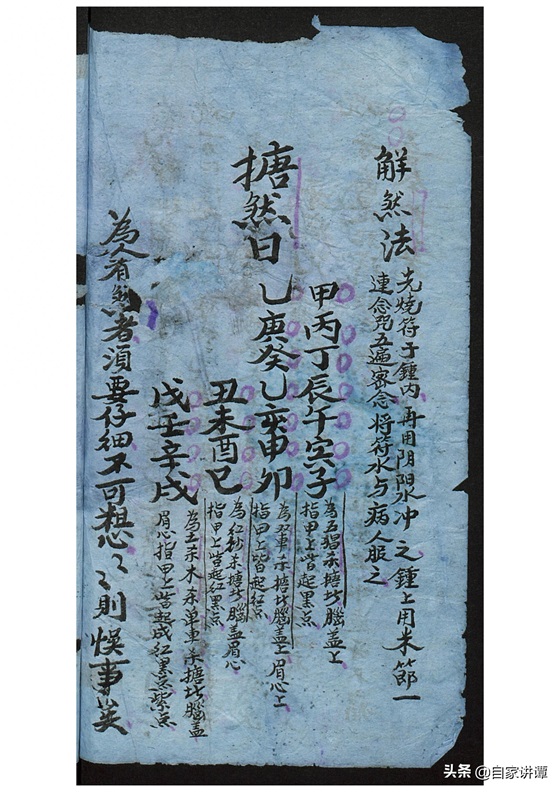 解煞法
先燒符于鍾内再用阴阳水冲之鍾上用朱節一
連念咒五遍密念将符水与病人服之
搪煞日
甲丙丁辰午寅子
為五猖杀搪此腦盖上
指甲上皆起黑点
乙庚癸乙亥申卯
為双車杀搪此腦盖上眉心上
指甲上皆起红点
丑未酉巳
為红砂杀搪此腦盖眉心
指甲上皆起红黑点
戊壬辛戌
為土杀木杀单車杀搪此腦盖
眉心指甲上皆起成红黑点紫点
為人有煞者須要仔细不可想心ミ則悮事矣
头条 @自家讲谭